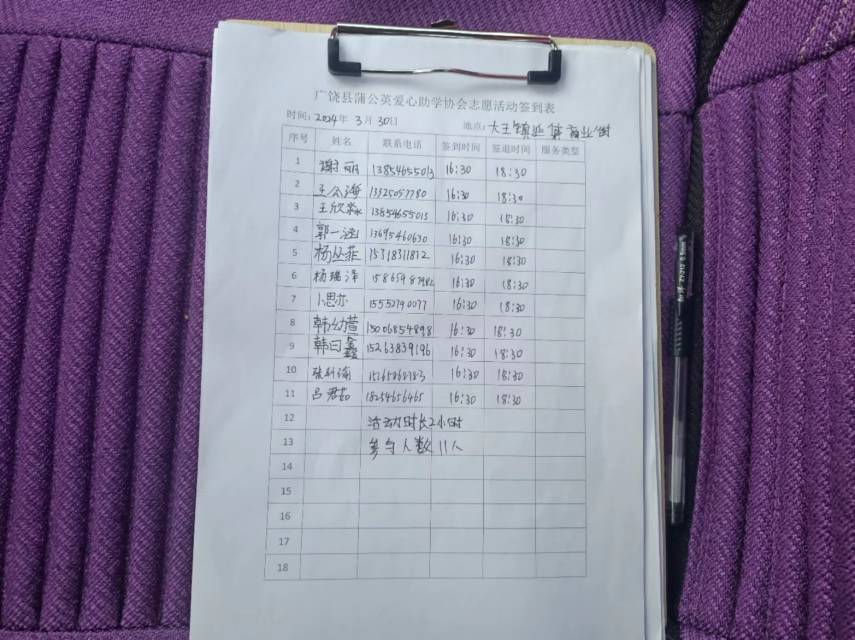 广饶县蒲公英爱心助学协会志愿活动签到表
时间：2024年 3月 30日 地点：大王镇 商业街
序号 姓名 联系电话 签到时间 签退时间 服务类型
1 谢丽 13854655013 16:30 18:30
2 王公海 13325057780 16:30 18:30
3 王欣淼 13854655013 16:30 18:30
4 郭一涵 13695460630 16:30 18:30
5 杨丛菲 15318311872 16:30 18:30
6 杨瑞泽 16:30 18:30
7 卜思亦 15552790077 16:30 18:30
8 韩幼萱 15006854898 16:30 18:30
9 韩曰鑫 15263839196 16:30 18:30
10 16:30 18:30
11 吕君茹 18254656465 16:30 18:30
12 活动时长2小时
13 参与人数11人
14
15
16
17
18